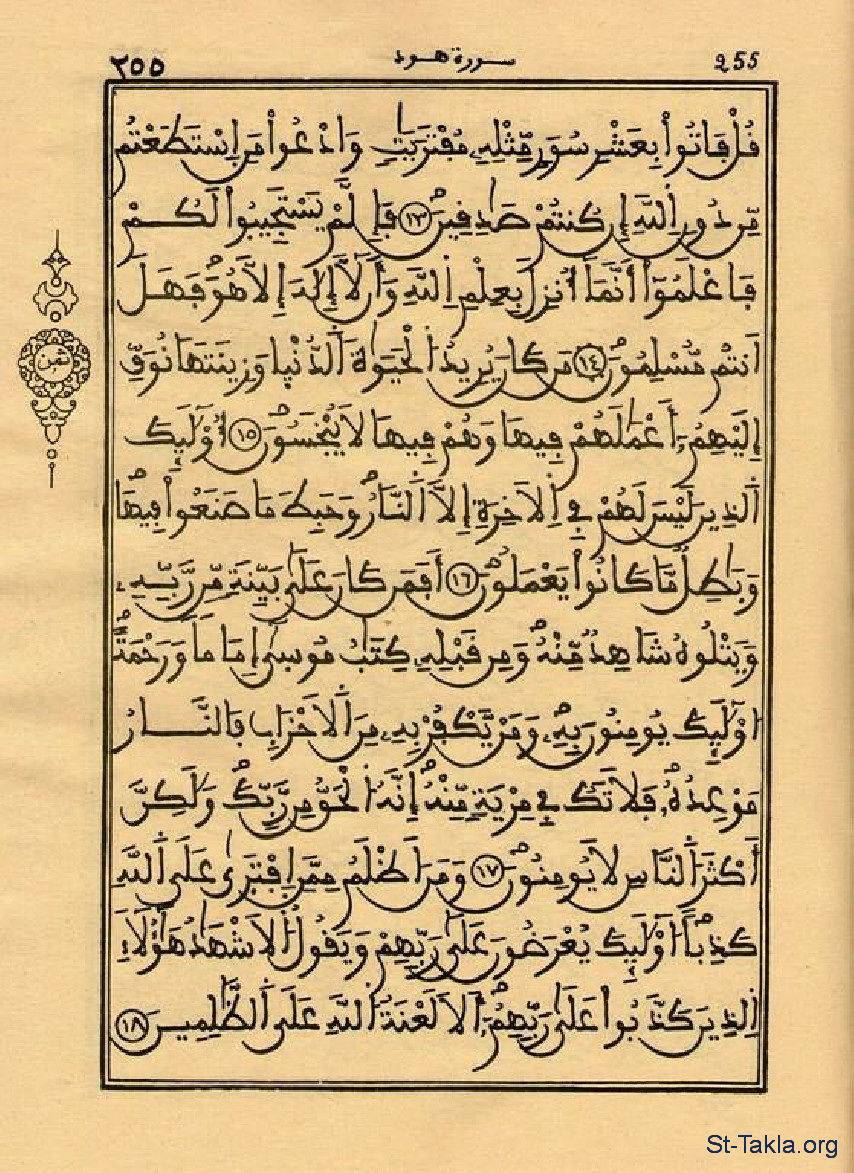 ٢٥٥ سورة هود 255
قُلْ فَاتُوا۟ بِعَشْرِ سُوَرٍ مِّثْلِهِۦ مُفْتَرَيَٰتٍ وَادْعُوا۟ مَنِ اِسْتَطَعْتُم
مِّن دُونِ اِ۬للَّهِ إِن كُنتُمْ صَٰدِقِينَۖ ١٣ فَإِلَّمْ يَسْتَجِيبُوا۟ لَكُمْ
فَاعْلَمُوٓا۟ أَنَّمَآ أُنزِلَ بِعِلْمِ اِ۬للَّهِ وَأَن لَّآ إِلَٰهَ إِلَّا هُوَۖ فَهَلَ
اَنتُم مُّسْلِمُونَۖ ١٤ مَن كَانَ يُرِيدُ اُ۬لْحَيَوٰةَ اَ۬لدُّنْيَا وَزِينَتَهَا نُوَفِّ
إِلَيْهِمُۥٓ أَعْمَٰلَهُمْ فِيهَا وَهُمْ فِيهَا لَا يُبْخَسُونَۖ ١٥ أُوْلَٰٓئِكَ
اَ۬لذِينَ لَيْسَ لَهُمْ فِے اِ۬لَاخِرَةِ إِلَّا اَ۬لنَّارُۖ وَحَبِطَ مَا صَنَعُوا۟ فِيهَاۖ
وَبَٰطِلٌ مَّا كَانُوا۟ يَعْمَلُونَۖ ١٦ أَفَمَن كَانَ عَلَىٰ بَيِّنَةٍ مِّن رَّبِّهِۦ
وَيَتْلُوهُ شَاهِدٌ مِّنْهُۖ وَمِن قَبْلِهِۦ كِتَٰبُ مُوسِىٰٓ إِمَاماً وَرَحْمَةًۖ
اُوْلَٰٓئِكَ يُومِنُونَ بِهِۦۖ وَمَنْ يَّكْفُرْ بِهِۦ مِنَ اَ۬لَاحْزَابِ فَالنَّارُ
مَوْعِدُهُۥۖ فَلَا تَكُ فِے مِرْيَةٍ مِّنْهُۖ إِنَّهُ اُ۬لْحَقُّ مِن رَّبِّكَۖ وَلَٰكِنَّ
أَكْثَرَ اَ۬لنَّاسِ لَا يُومِنُونَۖ ١٧ وَمَنَ اَظْلَمُ مِمَّنِ اِ۪فْتَر۪ىٰ عَلَى اَ۬للَّهِ
كَذِباًۖ ا۟وْلَٰٓئِكَ يُعْرَضُونَ عَلَىٰ رَبِّهِمْ وَيَقُولُ اُ۬لَاشْهَٰدُ هَٰٓؤُلَآءِ
اِ۬لذِينَ كَذَبُوا۟ عَلَىٰ رَبِّهِمُۥٓۖ أَلَا لَعْنَةُ اُ۬للَّهِ عَلَى اَ۬لظَّٰلِمِينَ ١٨
ثمن
St-Takla.org